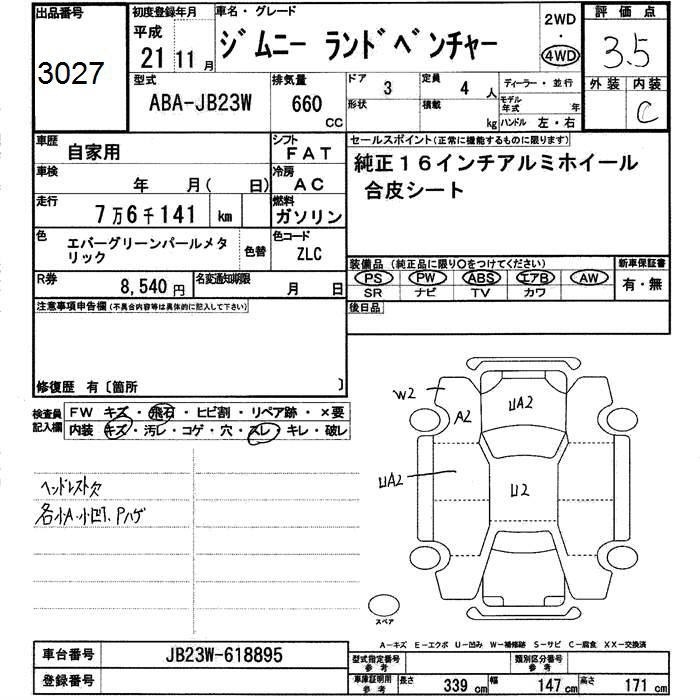 出品番号
3027
初度登録年月
平成
21 11月
車名・グレード
ジムニー ランドベンチャー
2WD
・
4WD
評価点
3.5
外装 内装
C
型式
ABA-JB23W
排気量
660
CC
ドア 3
形状
定員 4 人
積載 kg
ディーラー・並行
モデル年式 年
ハンドル 左・右
車歴 自家用
シフト FAT
車検 年 月( 日)
冷房 AC
走行 7万6千141 km
燃料 ガソリン
色 エバーグリーンパールメタリック
色替
色コード ZLC
R券 8,540円
名変通知期限 月 日
セールスポイント(正常に機能するものに限ります)
純正16インチアルミホイール
合皮シート
装備品(純正品に限り○をつけてください)
新車保証書
PS PW ABS エアB AW
有・無
SR ナビ TV カワ
後日品
注意事項申告欄(不具合内容等は具体的に記入して下さい)
修復歴 有〔箇所 〕
検査員記入欄
FW キズ・飛石・ヒビ割・リペア跡・×要
内装 キズ・汚レ・コゲ・穴・スレ・キレ・破レ
ヘッドレスト欠
各小A.小凹.Pハゲ
W2
A2
UA2
UA2
U2
スペア
A-キズ E-エクボ U-凹み W-補修跡 S-サビ C-腐食 XX-交換済
車台番号 JB23W-618895
登録番号
型式指定番号 参考
類別区分番号 参考
車庫証明用 参考
長さ 339 cm
幅 147 cm
高さ 171 cm